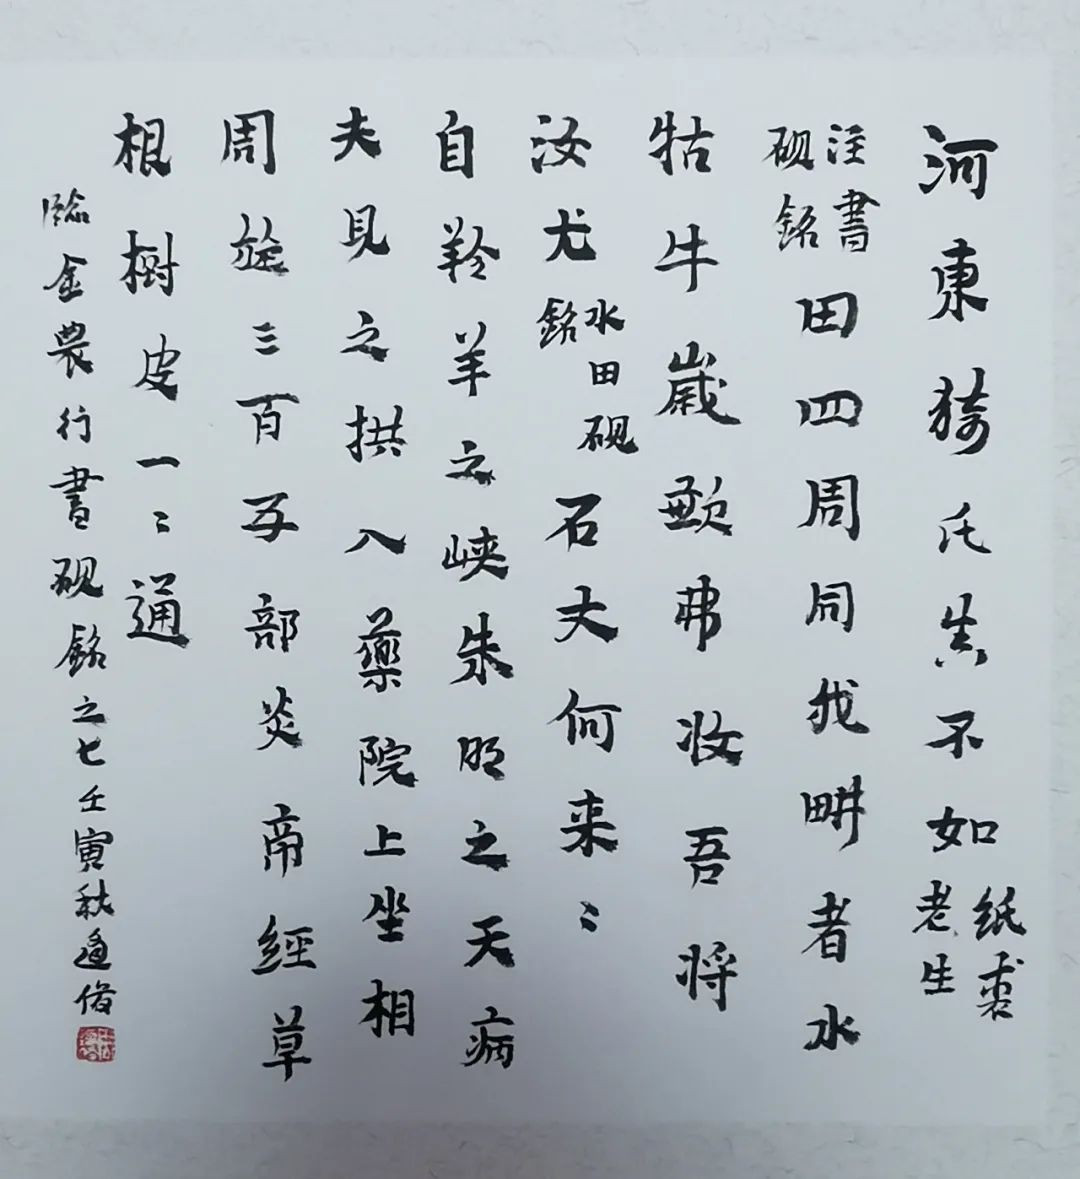 河東猗氏不如纸裹老生
注書砚銘田四周同我畊者水
牯牛歲歉弗妝吾将
汝尤水田砚銘石丈何来〻
自羚羊之峡朱明之天病
夫見之拱入藥院上坐相
周旋三百五部炎帝經草
根樹皮一〻通
臨金農行書砚銘之七壬寅秋